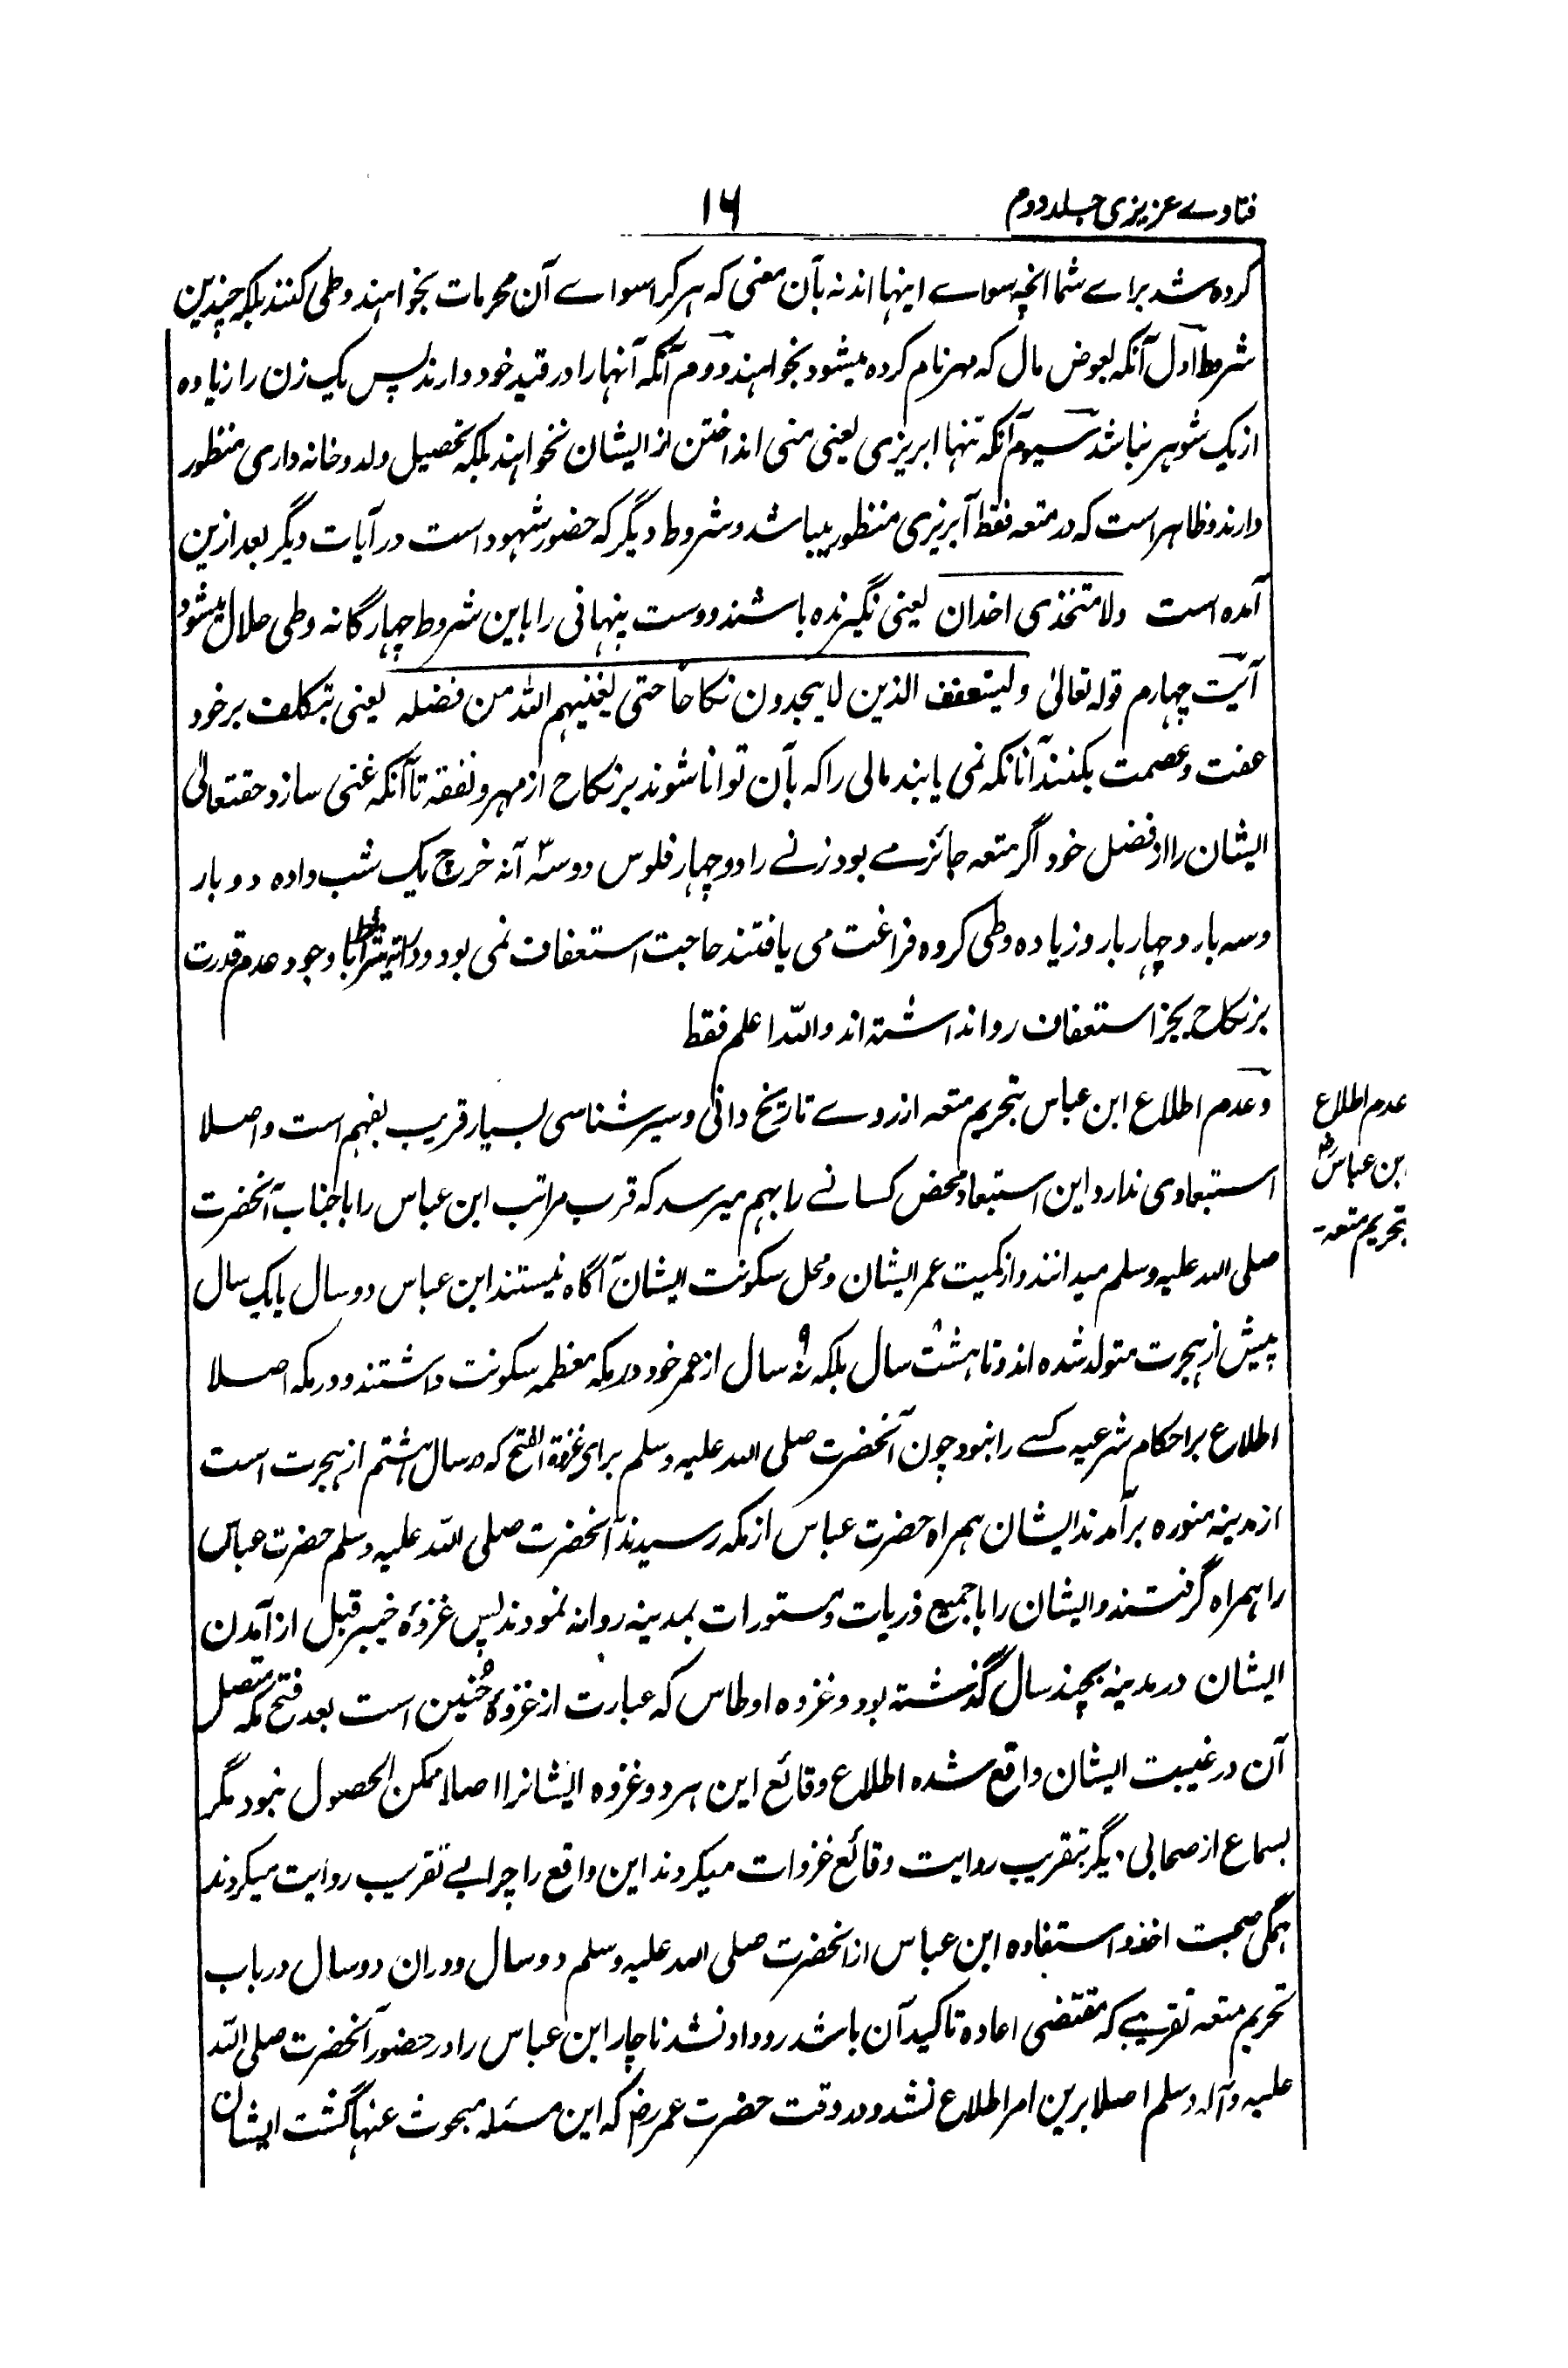 فتاوے عزیزی جلد دوم
۱۶
کرده شد براے شما انچه سواے اینها اند نه بآن معنی که هر کرا سواے آن محرمات بخواهند وطی کنند بلکه چندین
شرط اول آنکه بعوض مال که مهر نام کرده میشود بخواهند دوم آنکه آنها را در قید خود دارند پس یک زن را زیاده
از یک شوهر نباشد سیوم آنکه تنها ابریزی یعنی منی انداختن از ایشان نخواهند بلکه تحصیل ولد و خانه داری منظور
دارند و ظاهر است که در متعه فقط آبریزی منظور میباشد و شروط دیگر که حضور شهود است در آیات دیگر بعد ازین
آمده است ولا متخذی اخدان یعنی نگیرنده باشند دوست پنهانی را باین شروط چهارگانه وطی حلال میشود
آیت چهارم قوله تعالیٰ ولیستعفف الذین لا یجدون نکاحا حتی یغنیهم الله من فضله یعنی بتکلف برخود
عفت و عصمت بکنند آنانکه نمی یابند مالی را که بآن توانا شوند بر نکاح از مهر و نفقه تا آنکه غنی سازد حقتعالیٰ
ایشان را از فضل خود اگر متعه جائز مے بود زنے را دو چهار فلوس دو سه آنه خرچ یک شب داده دوبار
و سه بار و چهار بار و زیاده وطی کرده فراغت می یافتند حاجت استعفاف نمی بود و باوجود عدم قدرت
بر نکاح بجز استعفاف روا نداشته اند والله اعلم فقط
وعدم اطلاع ابن عباس بتحریم متعه از روے تاریخ دانی و سیر شناسی بسیار قریب بفهم است و اصلا
عدم اطلاع
ابن عباس رض
بتحریم متعه۔
استبعادی ندارد این استبعاد محض کسانے را بهم میرسد که قرب مراتب ابن عباس را با جناب آنحضرت
صلی الله علیه وسلم میدانند و از کمیت عمر ایشان و محل سکونت ایشان آگاه نیستند ابن عباس دو سال یا یک سال
پیش از هجرت متولد شده اند و تا هشت سال بلکه نه ۹ سال از عمر خود در مکه معظمه سکونت داشتند و در مکه اصلا
اطلاع بر احکام شرعیه کسے را نبود چون آنحضرت صلی الله علیه وسلم برای غزوة الفتح که در سال هشتم از هجرت است
از مدینه منوره برآمدند ایشان همراه حضرت عباس از مکه رسیدند آنحضرت صلی الله علیه وسلم حضرت عباس
را همراه گرفتند و ایشان را با جمیع ذریات و مستورات بمدینه روانه نمودند پس غزوهٔ خیبر قبل از آمدن
ایشان در مدینه بچند سال گذشته بود و غزوه اوطاس که عبارت از غزوهٔ حنین است بعد فتح مکه متصل
آن در غیبت ایشان واقع شده اطلاع وقائع این هر دو غزوه ایشانرا اصلا ممکن الحصول نبود مگر
بسماع از صحابی دیگر بتقریب روایت وقائع غزوات میکردند این واقع را چرا بے تقریب روایت میکردند
همگی صحبت اخذ و استفاده ابن عباس از انحضرت صلی الله علیه وسلم دو سال و دران دو سال در باب
تحریم متعه تقریبے که مقتضی اعاده تاکید آن باشد رو داد نشد ناچار ابن عباس را در حضور آنحضرت صلی الله
علیه وآله وسلم اصلا برین امر اطلاع نشد و در وقت حضرت عمر رض که این مسئله مبحوث عنها گشت ایشان